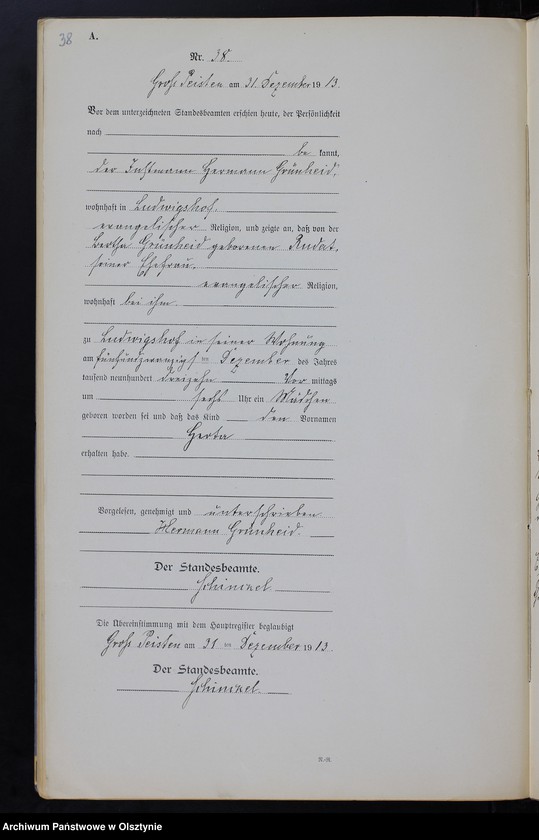 38
A.
Nr. 38.
Groß Peisten am 31. Dezember 1913.
Vor dem unterzeichneten Standesbeamten erschien heute, der Persönlichkeit
nach
be kannt,
der Instmann Hermann Grünheid,
wohnhaft in Ludwigshof,
evangelischer Religion, und zeigte an, daß von der
Bertha Grünheid geborenen Rudat,
seiner Ehefrau,
evangelischer Religion,
wohnhaft bei ihm
zu Ludwigshof in seiner Wohnung
am fünfundzwanzigsten Dezember des Jahres
tausend neunhundert dreizehn Vor mittags
um sechs Uhr ein Mädchen
geboren worden sei und daß das Kind den Vornamen
Herta
erhalten habe.
Vorgelesen, genehmigt und unterschrieben
Hermann Grünheid.
Der Standesbeamte.
Schinckel
Die Übereinstimmung mit dem Hauptregister beglaubigt
Groß Peisten am 31 ten Dezember 1913.
Der Standesbeamte.
Schinckel.
Archiwum Państwowe w Olsztynie